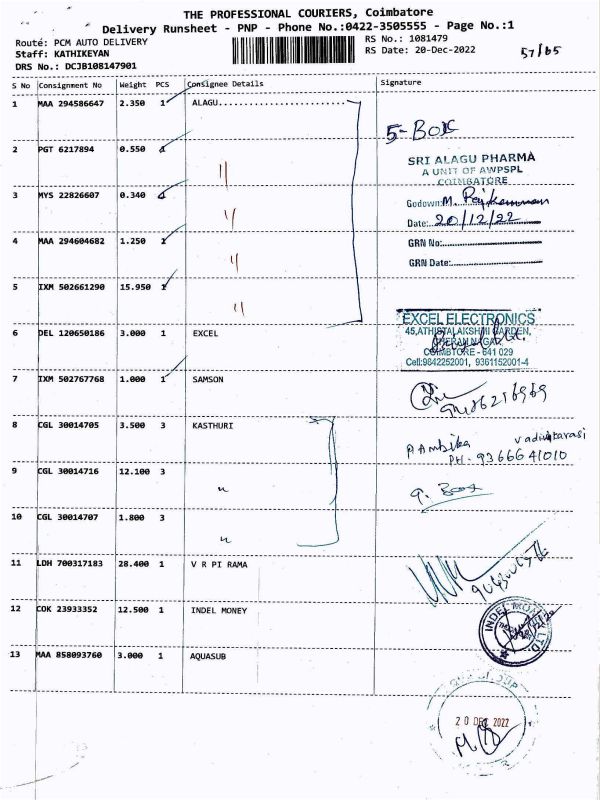 THE PROFESSIONAL COURIERS, Coimbatore
Delivery Runsheet - PNP - Phone No.:0422-3505555 - Page No.:1
Route: PCM AUTO DELIVERY
RS No.: 1081479
Staff: KATHIKEYAN
RS Date: 20-Dec-2022
57/65
DRS No.: DCJB108147901
S No Consignment No Weight PCS Consignee Details Signature
1 MAA 294586647 2.350 1 ALAGU
5-Box
2 PGT 6217894 0.550 1 "
SRI ALAGU PHARMA
A UNIT OF AWPSPL
COIMBATORE
3 MYS 22826607 0.340 1 "
Godown: M.
Date: 20/12/22
4 MAA 294604682 1.250 1 "
GRN No:
GRN Date:
5 IXM 502661290 15.950 1 "
EXCEL ELECTRONICS
45,ATHISTALAKSHMI GARDEN,
CHERAN NAGAR,
COIMBTORE - 641 029
Cell:9842252001, 9361152001-4
6 DEL 120650186 3.000 1 EXCEL
7 IXM 502767768 1.000 1 SAMSON
8 CGL 30014705 3.500 3 KASTHURI
P. Ambika
PH - 9366641010
9 CGL 30014716 12.100 3 "
9. Box
10 CGL 30014707 1.800 3 "
11 LDH 700317183 28.400 1 V R PI RAMA
12 COK 23933352 12.500 1 INDEL MONEY
INDEL MONEY LTD
13 MAA 858093760 3.000 1 AQUASUB
20 DEC 2022